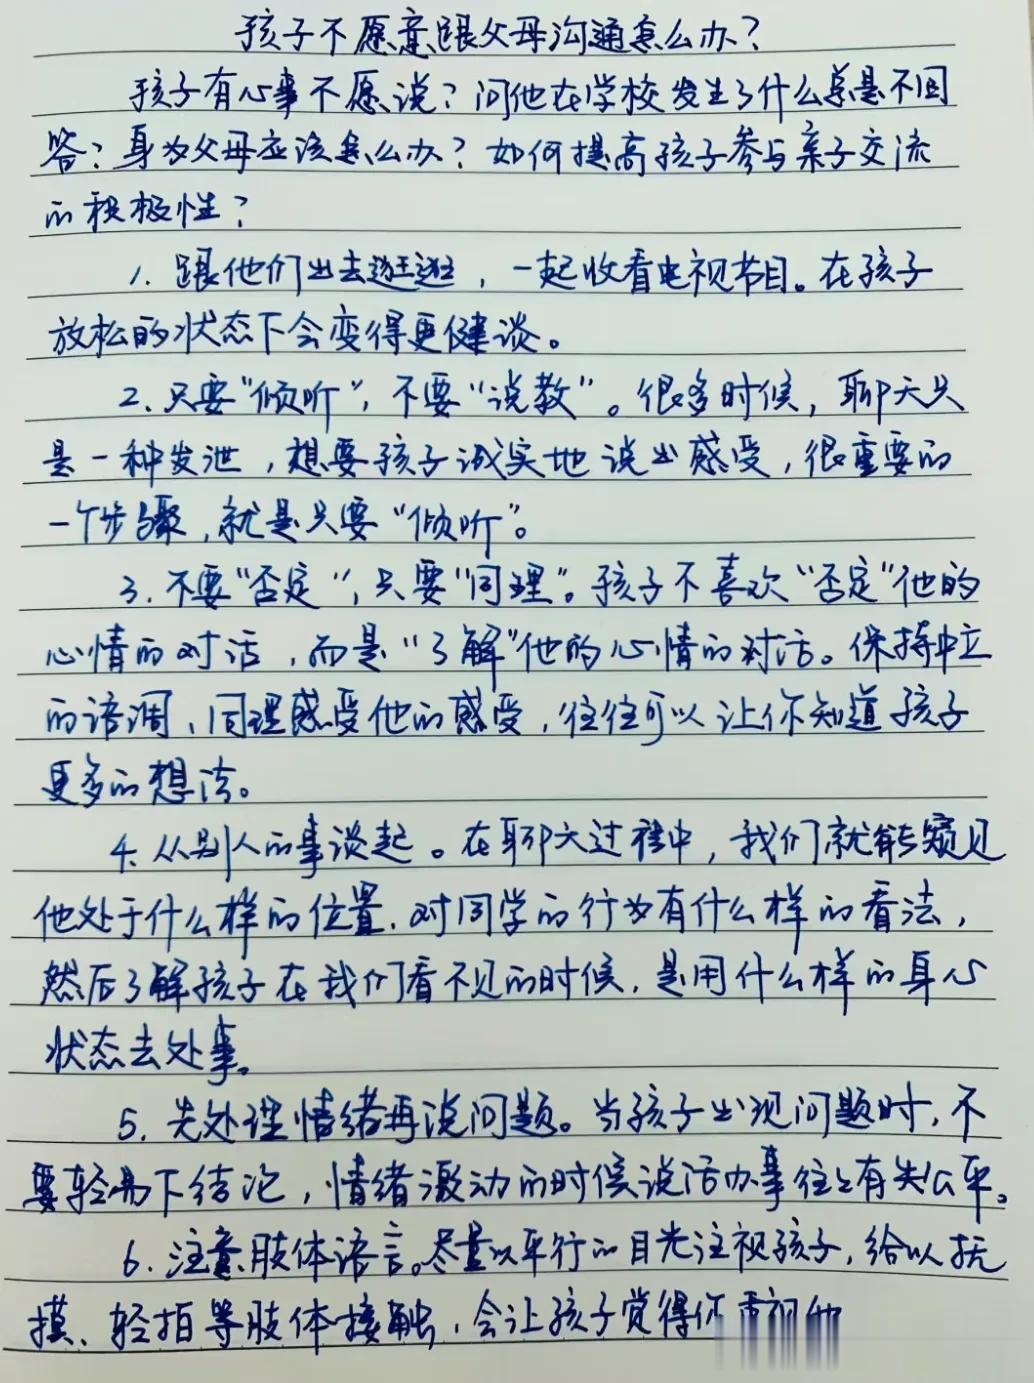 孩子不愿意跟父母沟通怎么办?
孩子有心事不愿说?问他在学校发生了什么总是不回
答?身为父母应该怎么办?如何提高孩子参与亲子交流
的积极性?
1. 跟他们出去逛逛,一起收看电视节目。在孩子
放松的状态下会变得更健谈。
2. 只要“倾听”,不要“说教”。很多时候,聊天只
是一种发泄,想要孩子诚实地说出感受,很重要的
一个步骤,就是只要“倾听”。
3. 不要“否定”,只要“同理”。孩子不喜欢“否定”他的
心情的对话,而是“了解”他的心情的对话。保持中立
的语调,同理感受他的感受,往往可以让你知道孩子
更多的想法。
4. 从别人的事谈起。在聊天过程中,我们就能窥见
他处于什么样的位置、对同学的行为有什么样的看法,
然后了解孩子在我们看不见的时候,是用什么样的身心
状态去处事。
5. 先处理情绪再说问题。当孩子出现问题时,不
要轻易下结论,情绪激动的时候说话办事往往有失公平。
6. 注意肢体语言。尽量以平行的目光注视孩子,给以抚
摸、轻拍等肢体接触,会让孩子觉得你重视他